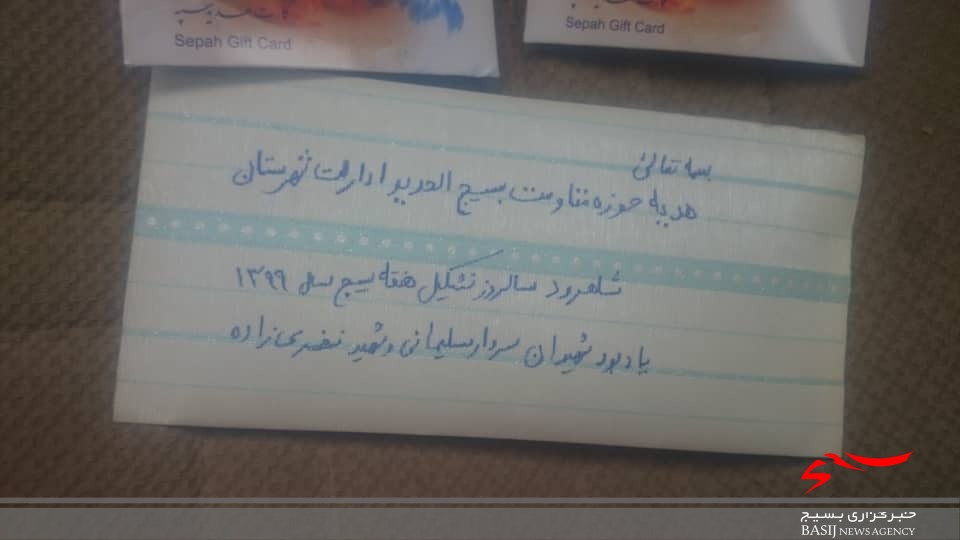 کارت هدیه سپه
Sepah Gift Card
Sepah Gift Card
بسمه تعالی
هدیه حوزه مقاومت بسیج الغدیر ادارات شهرستان
شاهرود سالروز تشکیل هفته بسیج سال ۱۳۹۹
یادبود شهیدان سردار سلیمانی و شهید فخری زاده
خبرگزاری بسیج
BASIJ NEWS AGENCY